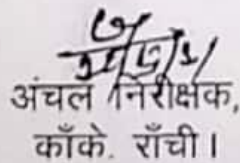 अंचल निरीक्षक,
काँके. राँची।